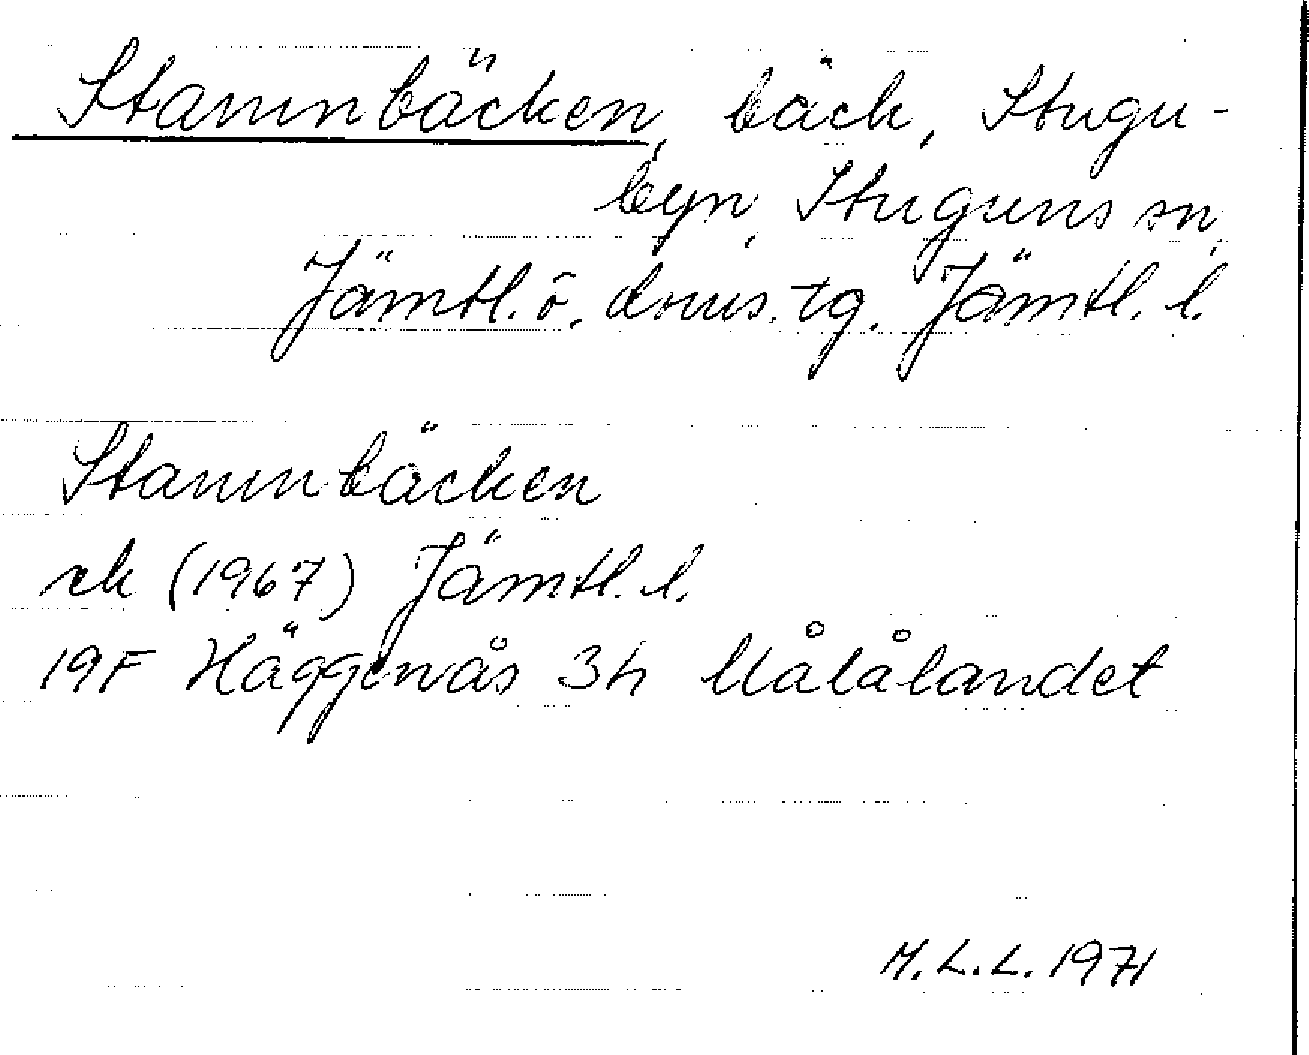 Stammbäcken, bäck, Stugu-
byn, Stuguns sn,
Jämtl. ö. doms. tg. Jämtl. l.
Stammbäcken
rek (1967) Jämtl. l.
19F Häggenås 3h Målålandet
M.L.L. 1971